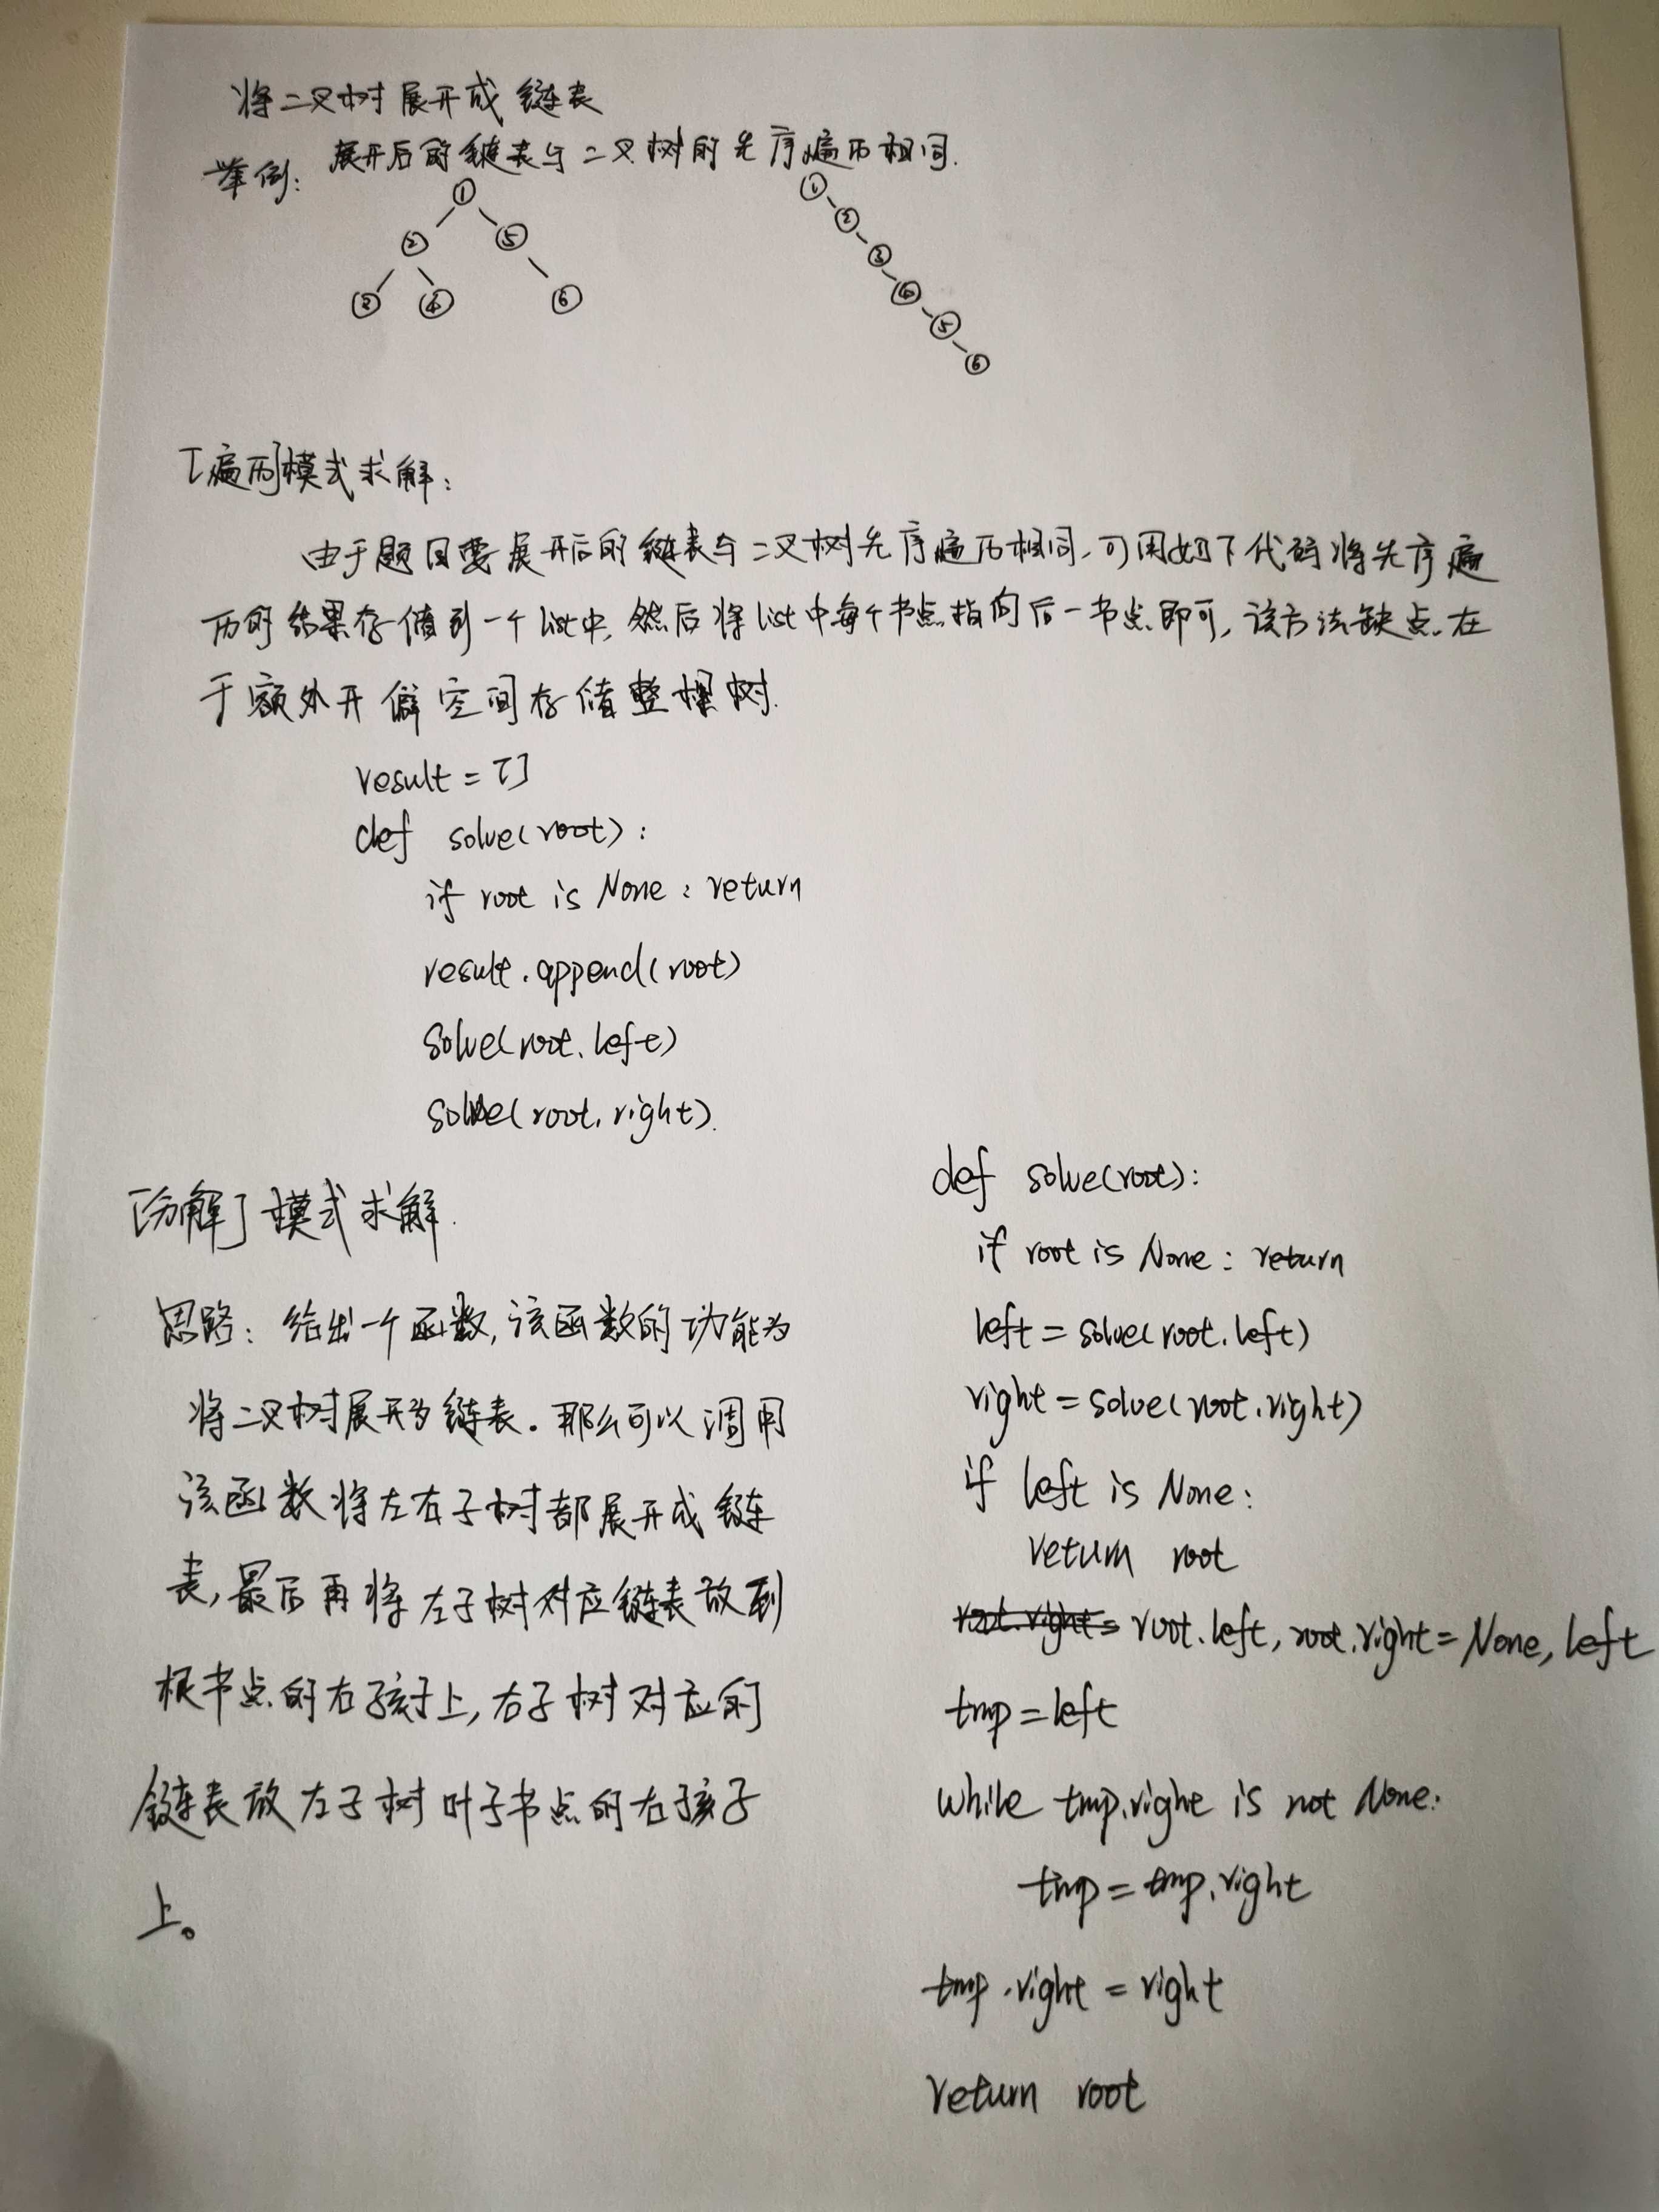 将二叉树展开成链表
展开后的链表与二叉树的先序遍历相同.
举例:
①
② ⑤
③ ④ ⑥
①
②
③
④
⑤
⑥
[遍历]模式求解:
由于题目要展开后的链表与二叉树先序遍历相同,可用如下代码将先序遍
历的结果存储到一个list中,然后将list中每个节点指向后一节点即可,该方法缺点在
于额外开僻空间存储整棵树.
result = []
def solve(root):
if root is None: return
result.append(root)
solve(root.left)
solve(root.right).
[分解]模式求解.
思路: 给出一个函数,该函数的功能为
将二叉树展开为链表。那么可以调用
该函数将左右子树都展开成链
表,最后再将左子树对应链表放到
根节点的右孩子上,右子树对应的
链表放左子树叶子节点的右孩子
上。
def solve(root):
if root is None: return
left = solve(root.left)
right = solve(root.right)
if left is None:
return root
root.right= root.left, root.right = None, left
tmp = left
while tmp.right is not None:
tmp = tmp.right
tmp.right = right
return root